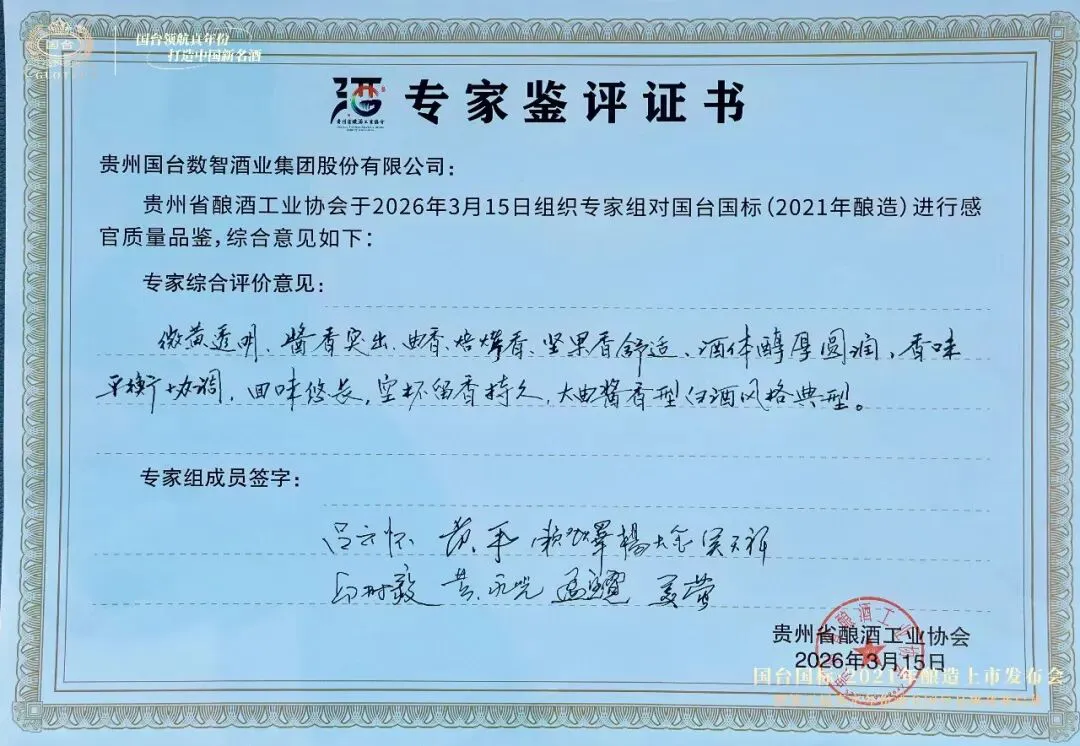 国台
GUOTAI
国台领航真年份
打造中国新名酒
专家鉴评证书
贵州省酿酒工业协会
贵州国台数智酒业集团股份有限公司：
贵州省酿酒工业协会于2026年3月15日组织专家组对国台国标（2021年酿造）进行感
官质量品鉴，综合意见如下：
专家综合评价意见：
微黄透明、酱香突出、曲香、焙烤香、坚果香舒适、酒体醇厚圆润、香味
平衡协调，回味悠长，空杯留香持久，大曲酱香型白酒风格典型。
专家组成员签字：
吕云怀 黄平 杨大金 吴天祥
黄永光
贵州省酿酒工业协会
2026年3月15日
国台国标·2021年酿造上市发布会